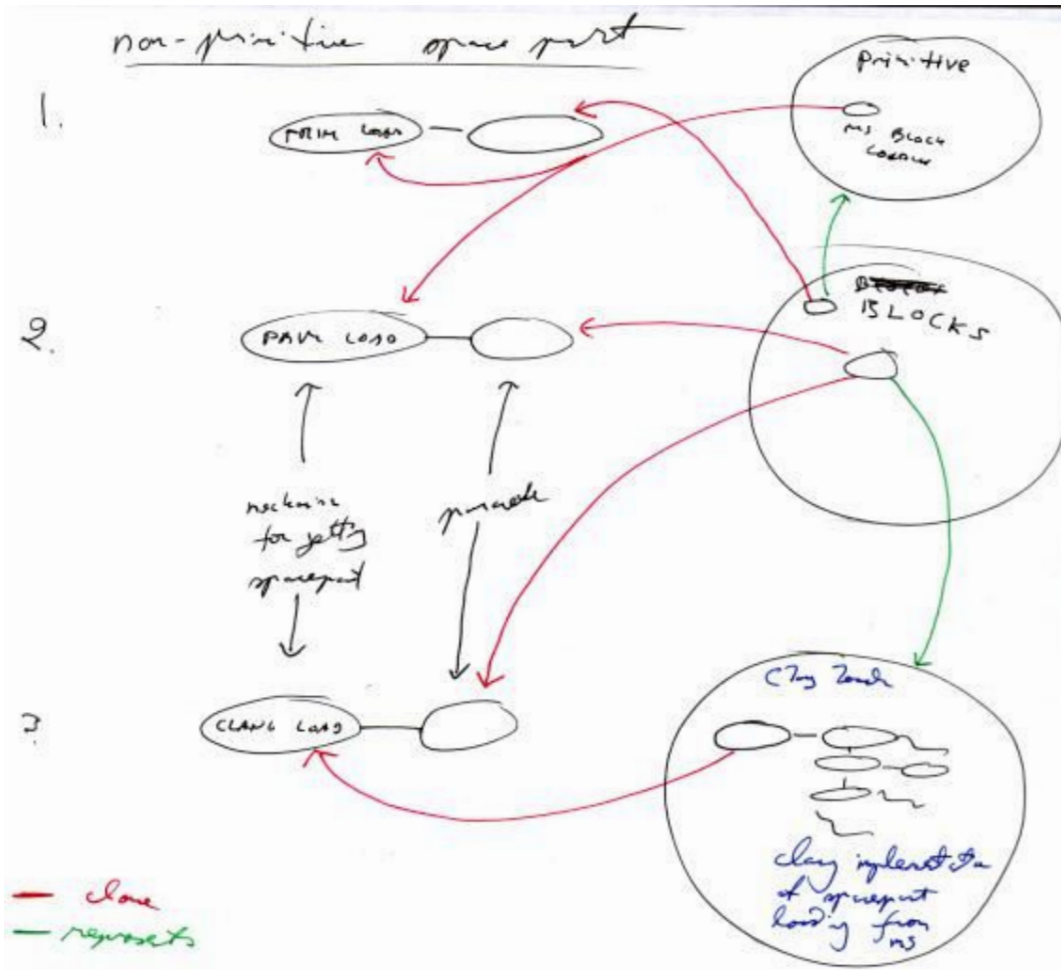 non-primitive space part
1.
PRIM LOAD
Primitive
MS BLOCK
LOADING
BLOCKS
2.
PRIM LOAD
mechanism
for getting
spacepart
3
CLANG LOAD
Clang
clang implementation
of spacepart
loading from
ms
clone
represents